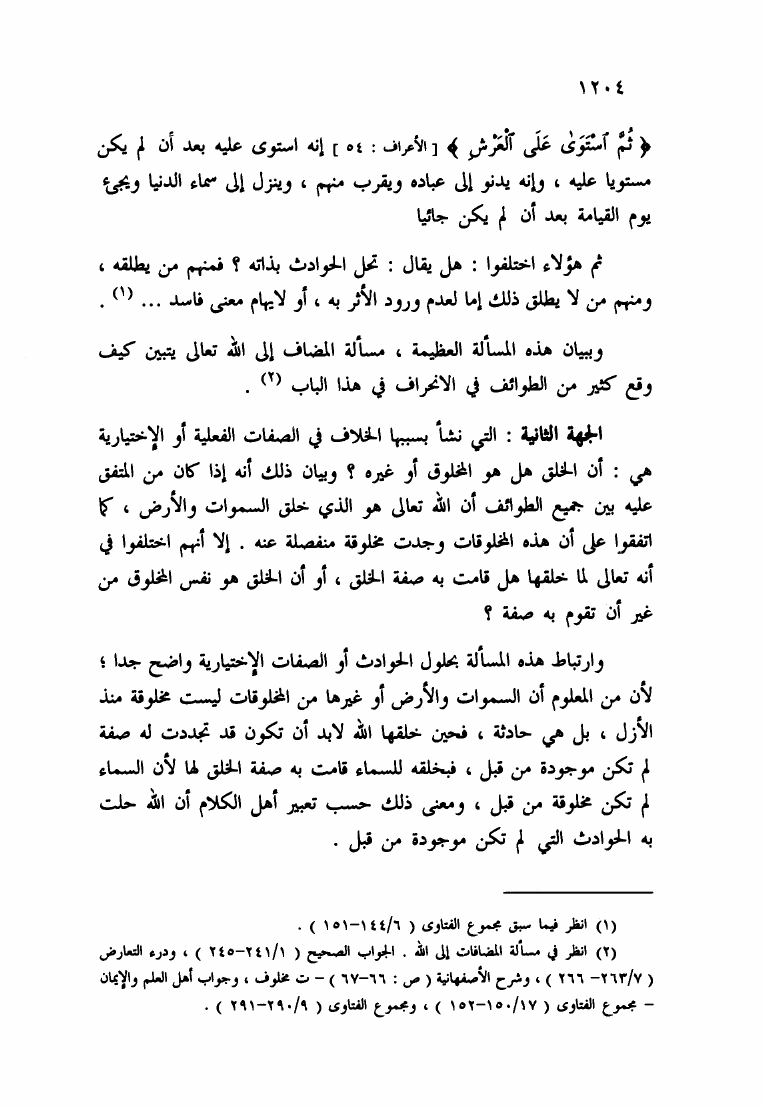 ١٢٠٤
﴿ ثُمَّ ٱسْتَوَىٰ عَلَى ٱلْعَرْشِ ﴾ [ الأعراف : ٥٤ ] إنه استوى عليه بعد أن لم يكن
مستويا عليه ، وإنه يدنو إلى عباده ويقرب منهم ، وينزل إلى سماء الدنيا ويجئ
يوم القيامة بعد أن لم يكن جائيا
ثم هؤلاء اختلفوا : هل يقال : تحل الحوادث بذاته ؟ فمنهم من يطلقه ،
ومنهم من لا يطلق ذلك إما لعدم ورود الأثر به ، أو لايهام معنى فاسد ... (١) .
وببيان هذه المسألة العظيمة ، مسألة المضاف إلى الله تعالى يتبين كيف
وقع كثير من الطوائف في الانحراف في هذا الباب (٢) .
الجهة الثانية : التي نشأ بسببها الخلاف في الصفات الفعلية أو الإختيارية
هي : أن الخلق هل هو المخلوق أو غيره ؟ وبيان ذلك أنه إذا كان من المتفق
عليه بين جميع الطوائف أن الله تعالى هو الذي خلق السموات والأرض ، كما
اتفقوا على أن هذه المخلوقات وجدت مخلوقة منفصلة عنه . إلا أنهم اختلفوا في
أنه تعالى لما خلقها هل قامت به صفة الخلق ، أو أن الخلق هو نفس المخلوق من
غير أن تقوم به صفة ؟
وارتباط هذه المسألة بحلول الحوادث أو الصفات الإختيارية واضح جدا ؛
لأن من المعلوم أن السموات والأرض أو غيرها من المخلوقات ليست مخلوقة منذ
الأزل ، بل هي حادثة ، فحين خلقها الله لابد أن تكون قد تجددت له صفة
لم تكن موجودة من قبل ، فبخلقه للسماء قامت به صفة الخلق لها لأن السماء
لم تكن مخلوقة من قبل ، ومعنى ذلك حسب تعبير أهل الكلام أن الله حلت
به الحوادث التي لم تكن موجودة من قبل .
(١) انظر فيما سبق مجموع الفتاوى ( ١٤٤/٦-١٥١ ) .
(٢) انظر في مسألة المضافات إلى الله . الجواب الصحيح ( ٢٤١/١-٢٤٥ ) ، ودرء التعارض
( ٢٦٣/٧- ٢٦٦ ) ، وشرح الأصفهانية ( ص : ٦٦-٦٧ ) - ت مخلوف ، وجواب أهل العلم والإيمان
- مجموع الفتاوى ( ١٥٠/١٧-١٥٢ ) ، ومجموع الفتاوى ( ٢٩٠/٩-٢٩١ ) .